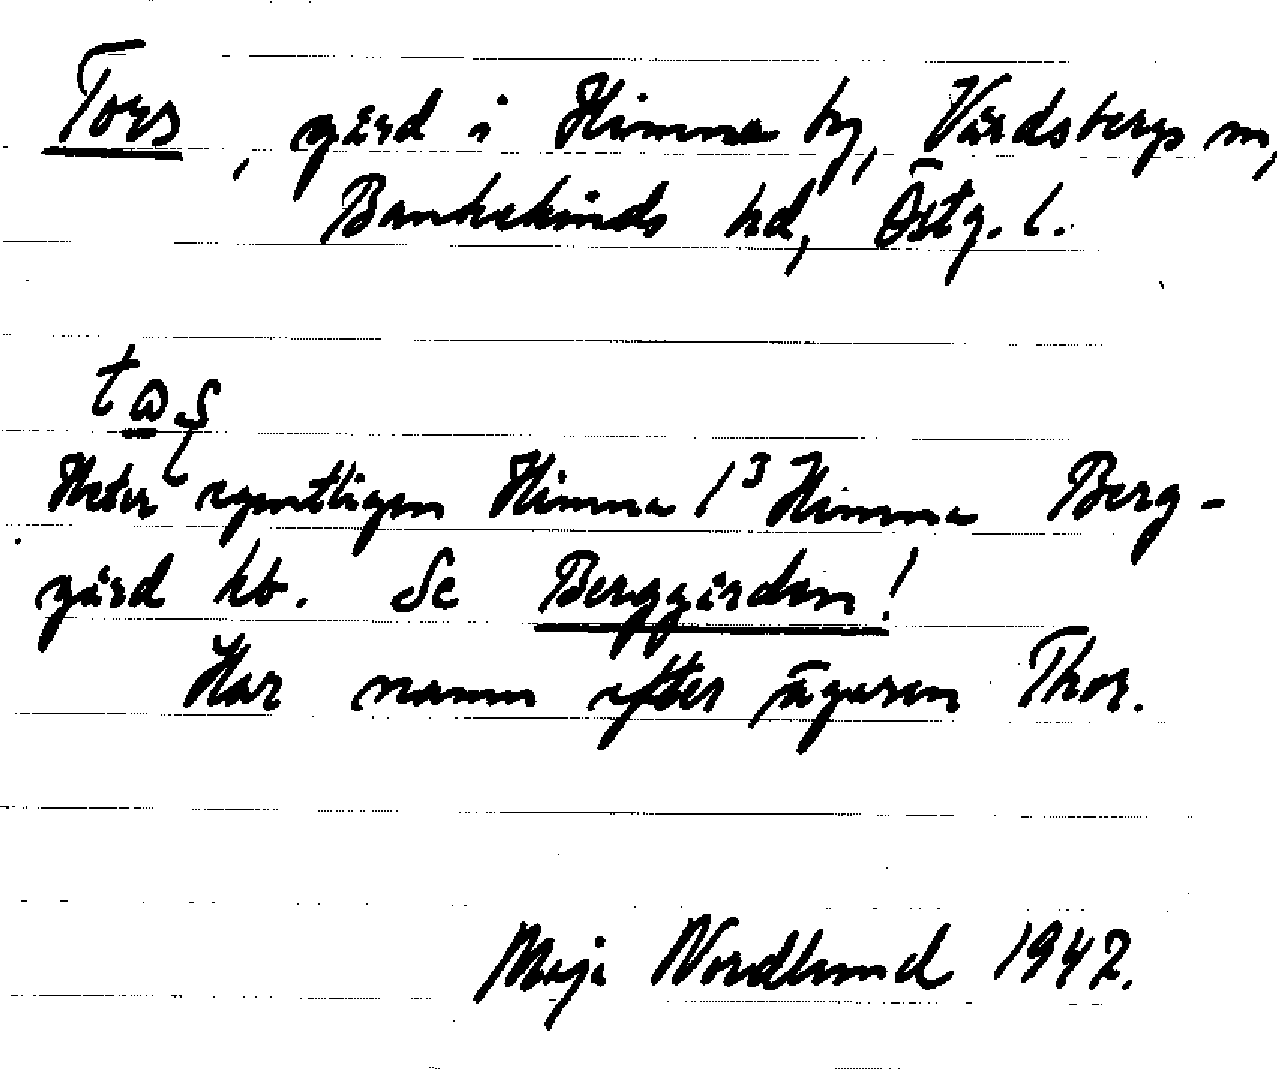 Tors, gård i Himma by, Vårdsbergs sn,
Bankekinds hd, Östg. l.
Heter egentligen Himma 1³ Himma Berg-
gård kb. Se Berggården!
Har namn efter ägaren Thor.
Maja Nordlund 1942.